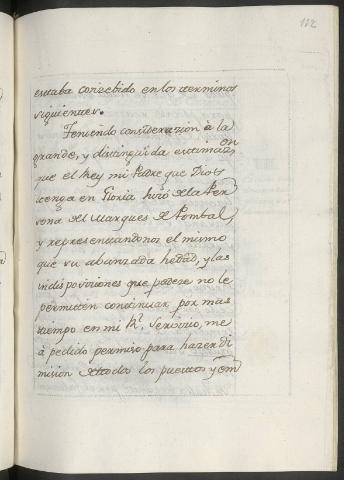 112
estaba conzebido en los terminos
siguientes.
Teniendo considerazion à la
grande, y distinguida estimaz.on
que el Rey mi Padre que Dios
tenga en Gloria hizo de la Per
sona del Marques de Pombal,
y representandonos el mismo
que su abanzada hedad, y las
indisposiziones que padeze no le
permiten continuar por mas
tiempo en mi R.l Servizio, me
à pedido permiso para hazer di
mision de todos los puestos y em